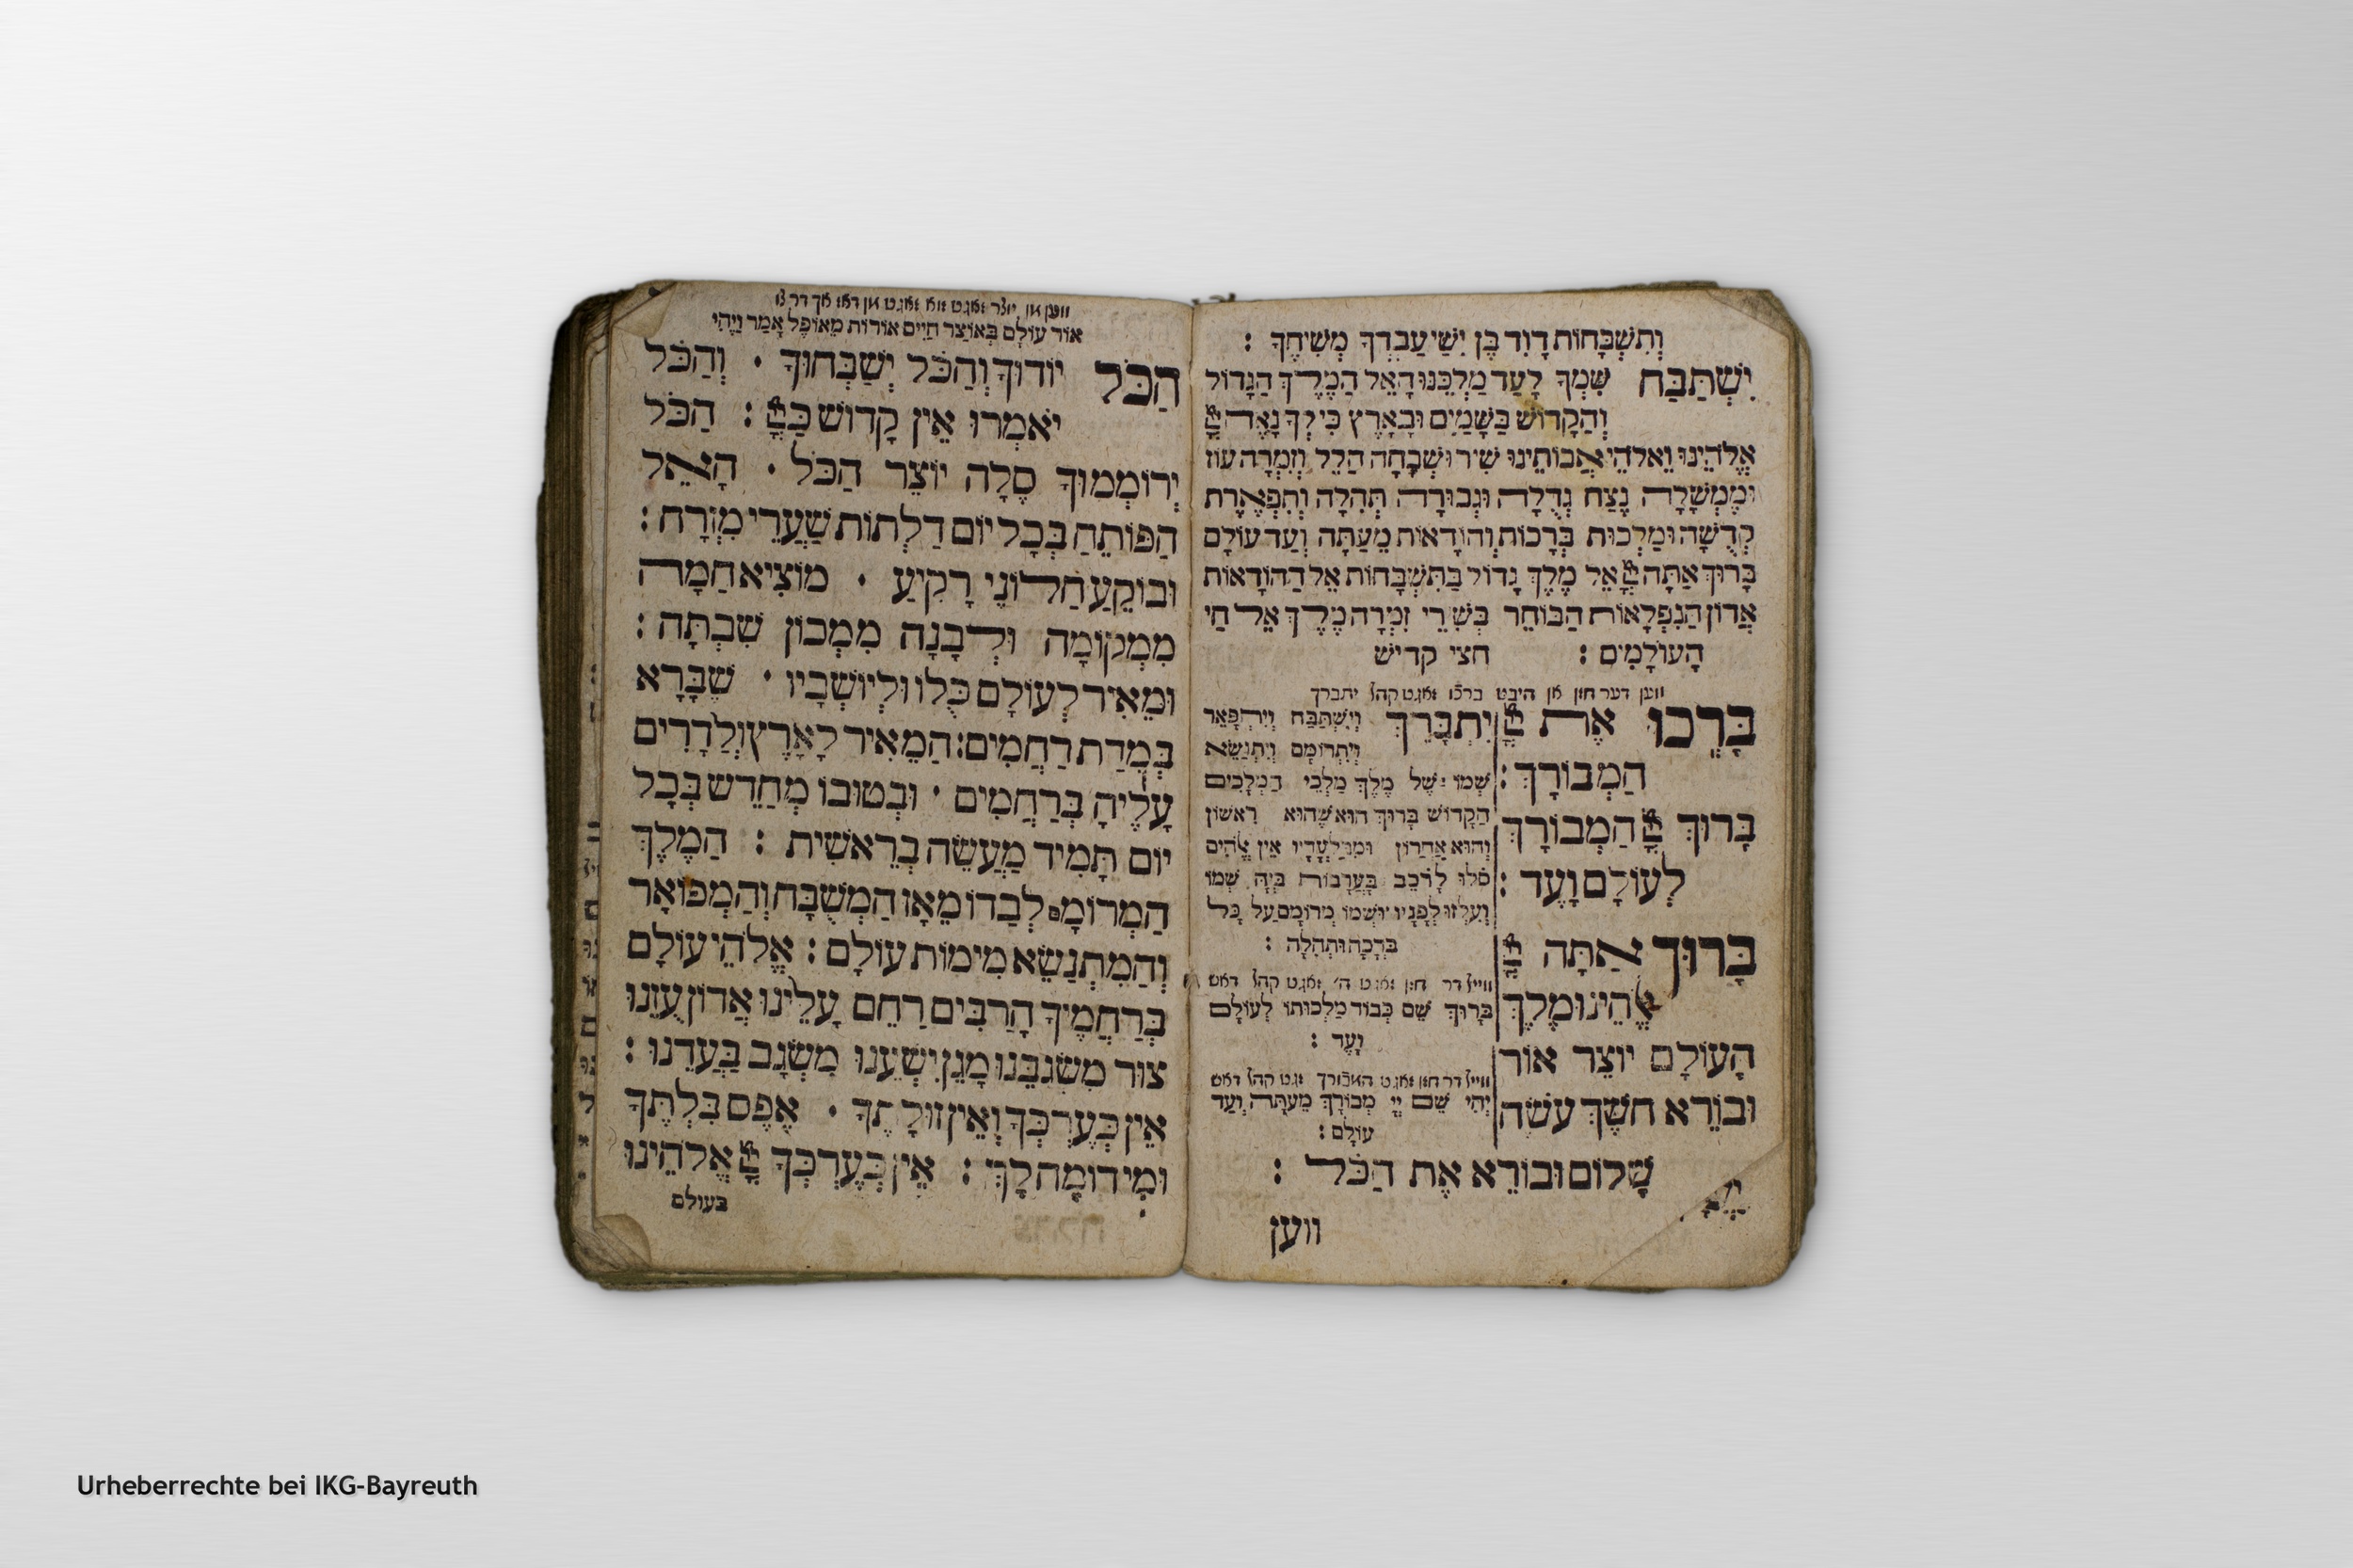 וְתִשְׁבָּחוֹת דָּוִד בֶּן יִשַׁי עַבְדְּךָ מְשִׁיחֶךָ :
יִשְׁתַּבַּח שִׁמְךָ לָעַד מַלְכֵּנוּ הָאֵל הַמֶּלֶךְ הַגָּדוֹל
וְהַקָּדוֹשׁ בַּשָּׁמַיִם וּבָאָרֶץ כִּי לְךָ נָאֶה
אֱלֹהֵינוּ וֵאלֹהֵי אֲבוֹתֵינוּ שִׁיר וּשְׁבָחָה הַלֵּל וְזִמְרָה עוֹז
וּמֶמְשָׁלָה נֶצַח גְּדֻלָּה וּגְבוּרָה תְּהִלָּה וְתִפְאֶרֶת
קְדֻשָּׁה וּמַלְכוּת בְּרָכוֹת וְהוֹדָאוֹת מֵעַתָּה וְעַד עוֹלָם
בָּרוּךְ אַתָּה אֵל מֶלֶךְ גָּדוֹל בַּתִּשְׁבָּחוֹת אֵל הַהוֹדָאוֹת
אֲדוֹן הַנִּפְלָאוֹת הַבּוֹחֵר בְּשִׁרֵי זִמְרָה מֶלֶךְ אֵל חַי
הָעוֹלָמִים : חצי קדיש
ווען דער חזן אן היבט ברכו זאגט קהל יתברך
בָּרְכוּ אֶת
הַמְבוֹרָךְ :
בָּרוּךְ הַמְבוֹרָךְ
לְעוֹלָם וָעֶד :
יִתְבָּרֵךְ וְיִשְׁתַּבַּח וְיִתְפָּאֵר
וְיִתְרוֹמֵם וְיִתְנַשֵּׂא
שְׁמוֹ שֶׁל מֶלֶךְ מַלְכֵי הַמְּלָכִים
הַקָּדוֹשׁ בָּרוּךְ הוּא שֶׁהוּא רִאשׁוֹן
וְהוּא אַחֲרוֹן וּמִבַּלְעָדָיו אֵין אֱלֹהִים
סֹלּוּ לָרֹכֵב בָּעֲרָבוֹת בְּיָהּ שְׁמוֹ
וְעִלְזוּ לְפָנָיו וּשְׁמוֹ מְרוֹמָם עַל כָּל
בְּרָכָה וּתְהִלָּה :
בָּרוּךְ אַתָּה
אֱלֹהֵינוּ מֶלֶךְ
הָעוֹלָם יוֹצֵר אוֹר
וּבוֹרֵא חשֶׁךְ עשֶׂה
ווייל דר חזן זאגט ה' זאגט קהל דאש
בָּרוּךְ שֵׁם כְּבוֹד מַלְכוּתוֹ לְעוֹלָם
וָעֶד :
ווייל דר חזן זאגט המבורך זגט קהל דאש
יְהִי שֵׁם יְיָ מְבוֹרָךְ מֵעַתָּה וְעַד
עוֹלָם :
שָׁלוֹם וּבוֹרֵא אֶת הַכֹּל :
ווען
ווען מן יוצר זאגט זוא זאגט מן דאז אך דר צו
אוֹר עוֹלָם בְּאוֹצַר חַיִּים אוֹרוֹת מֵאוֹפֶל אָמַר וַיֶּהִי
הַכֹּל יוֹדוּךָ וְהַכֹּל יְשַׁבְּחוּךָ · וְהַכֹּל
יֹאמְרוּ אֵין קָדוֹשׁ : הַכֹּל
יְרוֹמְמוּךָ סֶלָה יוֹצֵר הַכֹּל · הָאֵל
הַפּוֹתֵחַ בְּכָל יוֹם דַּלְתוֹת שַׁעֲרֵי מִזְרָח :
וּבוֹקֵעַ חַלּוֹנֵי רָקִיעַ · מוֹצִיא חַמָּה
מִמְּקוֹמָהּ וּלְבָנָה מִמְּכוֹן שִׁבְתָּהּ :
וּמֵאִיר לְעוֹלָם כֻּלּוֹ וּלְיוֹשְׁבָיו · שֶׁבָּרָא
בְּמִדַּת רַחֲמִים : הַמֵּאִיר לָאָרֶץ וְלַדָּרִים
עָלֶיהָ בְּרַחֲמִים · וּבְטוּבוֹ מְחַדֵּשׁ בְּכָל
יוֹם תָּמִיד מַעֲשֵׂה בְרֵאשִׁית : הַמֶּלֶךְ
הַמְרוֹמָם לְבַדּוֹ מֵאָז הַמְשֻׁבָּח וְהַמְפוֹאָר
וְהַמִּתְנַשֵּׂא מִימוֹת עוֹלָם : אֱלֹהֵי עוֹלָם
בְּרַחֲמֶיךָ הָרַבִּים רַחֵם עָלֵינוּ אֲדוֹן עֻזֵּנוּ
צוּר מִשְׂגַּבֵּנוּ מָגֵן יִשְׁעֵנוּ מִשְׂגָּב בַּעֲדֵנוּ :
אֵין כְּעֶרְכְּךָ וְאֵין זוּלָתֶךָ · אֶפֶס בִּלְתֶּךָ
וּמִי דוֹמֶה לָּךְ : אֵין כְּעֶרְכְּךָ אֱלֹהֵינוּ
בעולם
Urheberrechte bei IKG-Bayreuth